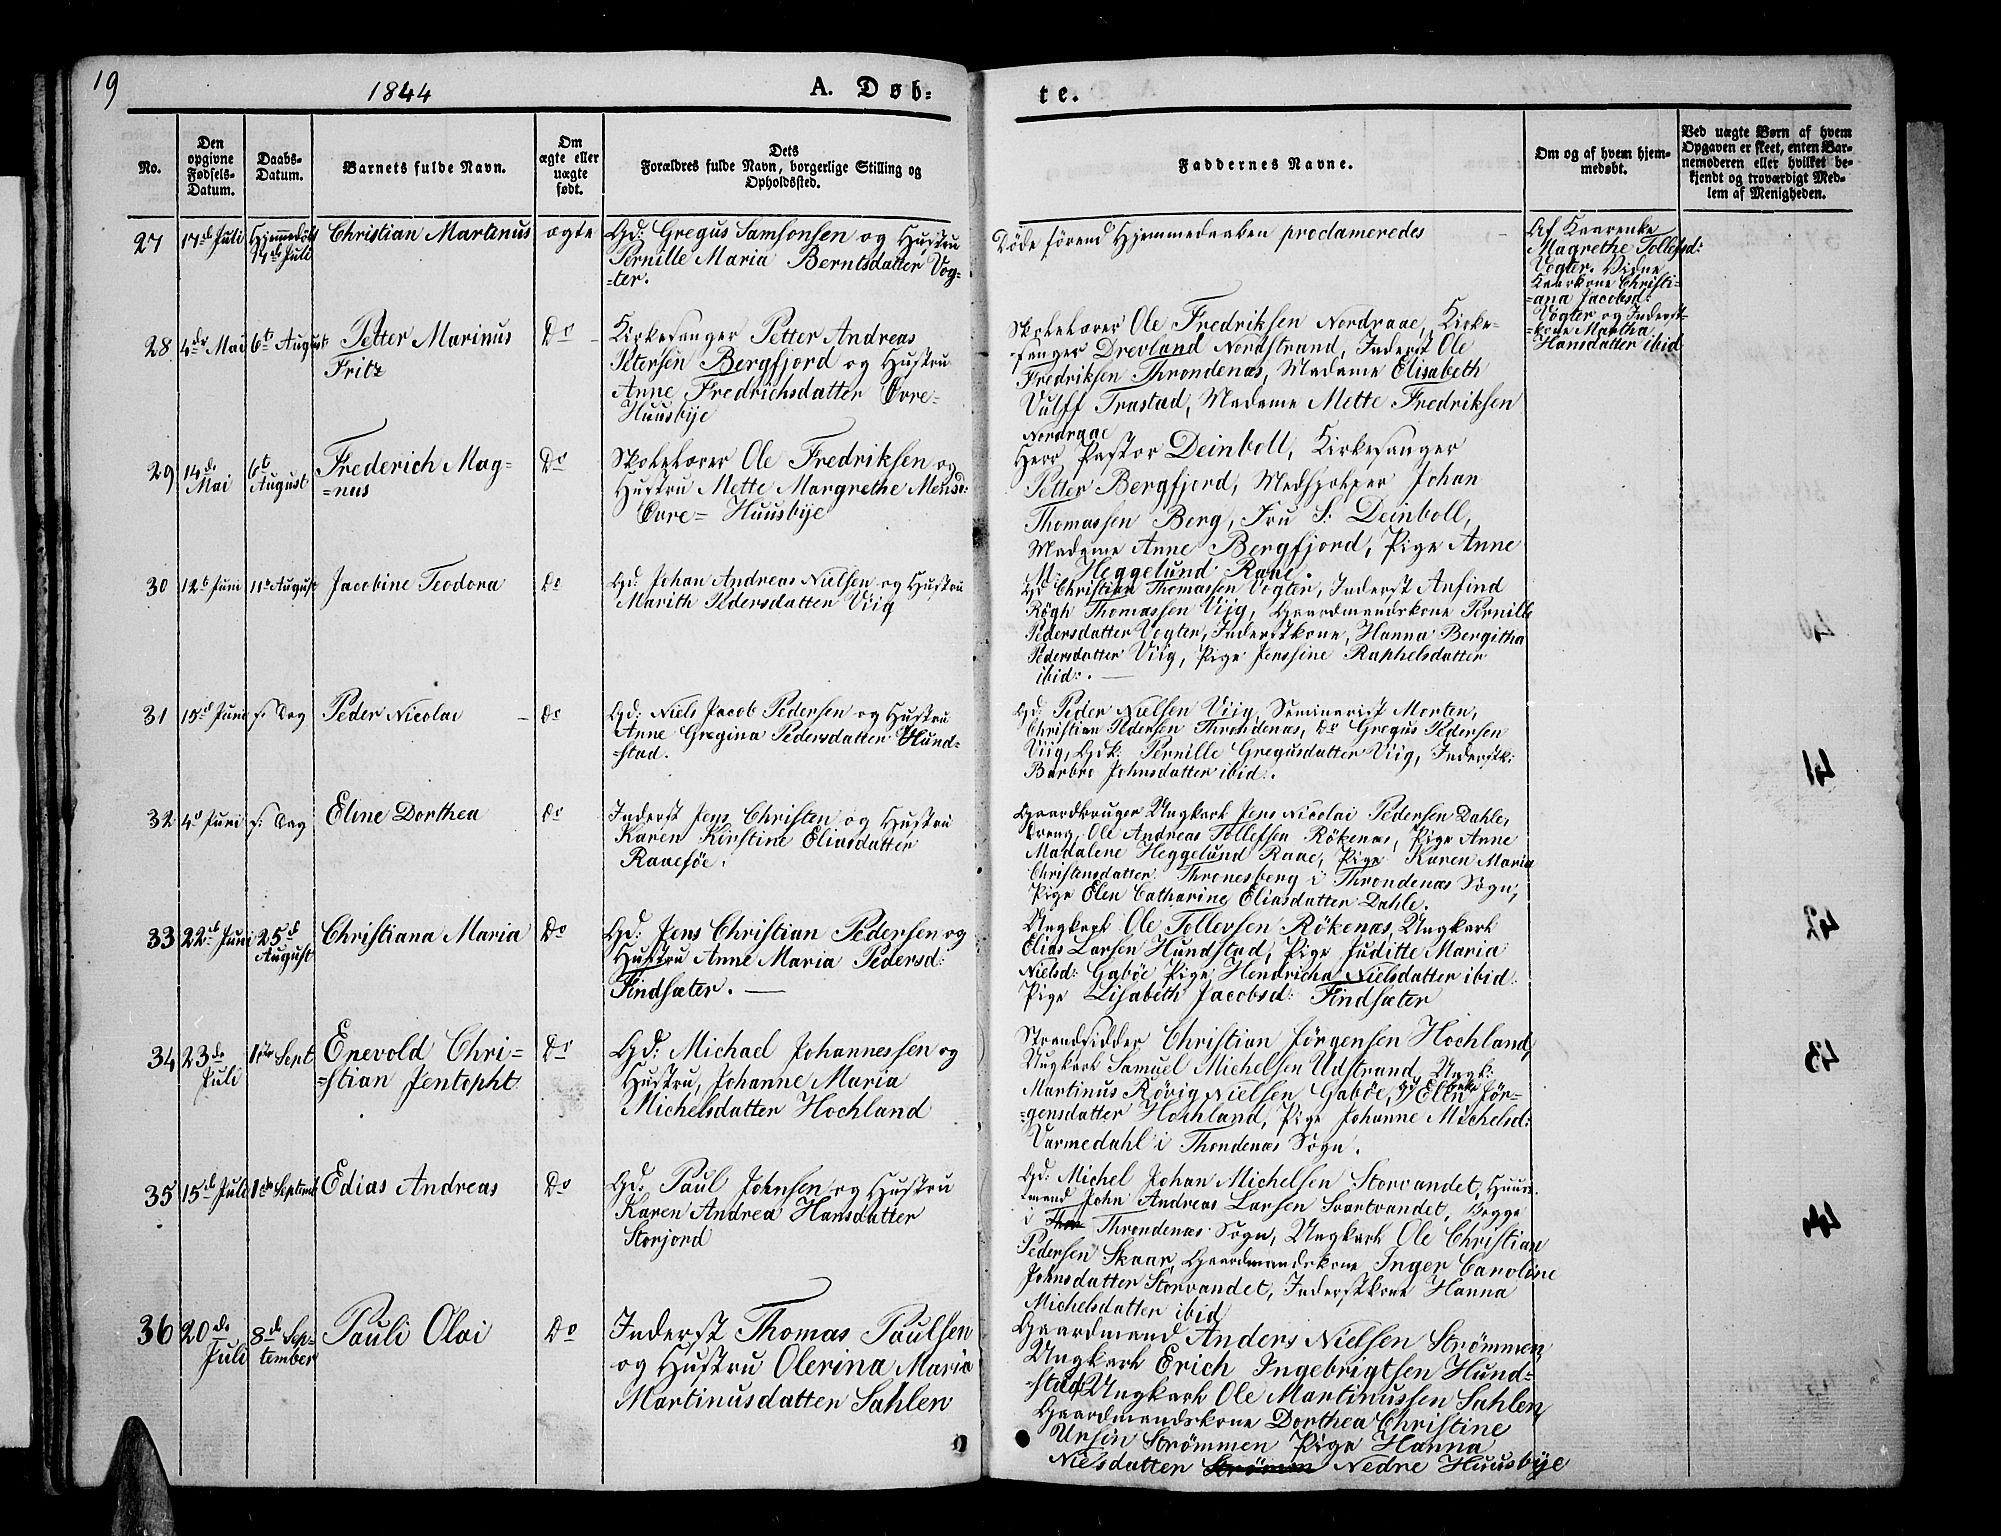 19
1844
A. Døb-
te.
No.
Den opgivne Fødsels-Datum.
Daabs-Datum.
Barnets fulde Navn.
Om ægte eller uægte født.
Dets
Forældres fulde Navn, borgerlige Stilling og
Opholdssted.
Faddernes Navne.
Om og af hvem hjem-
medøbt.
Ved uægte Børn af hvem
Opgaven er skeet, enten Bar-
nemoderen eller hvilket be-
kjendt og troværdigt Med-
lem af Menigheden.
27
17de Juli
Hjemmedøbt
Juli
Christian Martinus
ægte
Gd: Gregus Samsonsen og Hustru
Pernille Maria Berntsdatter Vog-
=ter.
Døde førend Hjemmedaaben proclameredes
Af Kaarenke
Magrethe Tollefsd:
Vogter. Vidne
Kaarkone Christi-
=ana Jacobsd:
Vogter og Inderst-
=kone Martha
Hansdatter ibid
28
4de Mai
6te August
Petter Marinus
Fritz
Do
Kirkesanger Petter Andreas
Petersen Bergfjord og Hustru
Anne Fredrichsdatter Øvre=
Huusbye
Skolelærer Ole Fredriksen Nordraae, Kirke-
=sanger Drevland Nordstrand, Inderst Ole
Fredriksen Throndenæs, Madame Elisabeth
Vulff Trastad, Madame Mette Fredriksen
Nordraae
29
14de
Mai
6te
August
Frederich Mag=
=nus
Do
Skolelærer Ole Fredriksen og
Hustru Mette Margrethe Mensd:
Øvre= Huusbye
Herr Pastor Deinboll, Kirkesanger
Petter Bergfjord, Medhjelper Johan
Thomassen Berg, Fru S: Deinboll,
Madame Anne Bergfjord, Pige Anne
M. Heggelund Raae.
30
12te Juni
11te August
Jacobine Teodora
Do
Gd: Johan Andreas Nielsen og Hustru
Marith Pedersdatter Viig
Gd Christian Thomassen Vogter, Inderst Anfind
Røgh Thomassen Viig, Gaardmandskone Pernille
Pedersdatter Vogter, Inderstkone, Hanna Bergitha
Pedersdatter Viig, Pige Jenssine Raphelsdatter
ibid:.
31
15de Juni
s. Dag
Peder Nicolai
Do
Gd: Niels Jacob Pedersen og Hustru
Anne Gregina Pedersdatter Hund-
=stad.
Gd: Peder Nielsen Viig, Seminarist Morten,
Christian Pedersen Throndenæs, Do Gregus Pedersen
Viig, Gdk: Pernille Gregusdatter Viig, Inderstk:
Barbro Johnsdatter ibid.
32
4de Juni
s. Dag
Eline Dorthea
Do
Inderst Jens Christen og Hustru
Karen Kirstine Eliasdatter
Raaeføe.
Gaardbruger Ungkark Jens Nicolai Pedersen Dahle,
Dreng, Ole Andreas Tollefsen Rökenæs, Pige Anne
Madalene Heggelund Raae, Pige Karen Maria
Christensdatter Thronesberg i Throndenæs Sogn,
Pige Elen Catharine Eliasdatter Dahle.
33
22de Juni
25de
August
Christiana Maria
Do
Gd: Jens Christian Pedersen og
Hustru Anne Maria Pedersd:
Findsæter.
Ungkark Ole Tollevsen Rökenæs, Ungkark
Elias Larsen Hundstad, Pige Juditte Maria
Nielsd: Gaböe Pige Hendricha Nielsdatter ibid:
Pige Lisabeth Jacobsd: Findsæter
34
23de
Juli
1ste Sept
Enevold Chri=
=stian Jentopht
Do
Gd: Michael Johannessen og
Hustru, Johanne Maria
Michelsdatter Hochland
Strandsidder Christian Jörgensen Hochland,
Ungkark Samuel Michelsen Udstrand, Ungk:
Martinus Rövig Nielsen Gaböe, Elen Jör-
=gensdatter Hochland, Pige Johanne Michelsd:
Varmedahl i Thondenæs Sogn.
35
15de Juli
1ste Septemb
Edias Andreas
Do
Gd: Paul Johnsen og Hustru
Karen Andrea Hansdatter
Storjord
Gd: Michel Johan Michelsen Storvandet, Huus-
mand John Andreas Larsen Svartvandet, begge
i Throndenæs Sogn, Ungkark Ole Christian
Pedersen Skaar, Gaardmandskone Inger Caroline
Johnsdatter Storvandet, Inderstkone Hanna
Michelsdatter ibid
36
20de
Juli
8de Sep-
tember
Pauli Olai
Do
Inderst Thomas Paulsen
og Hustru Olerina Maria
Martinusdatter Sahlen
Gaardmand Anders Nielsen Strømmen,
Ungkark Erich Ingebrigtsen Hund=
=stad, Ungkark Ole Martinussen Sahlen,
Gaardmandskone Dorthea Christine
Ursin Strømmen Pige Hanna
Nielsdatter Strömen Nedre Huusbye